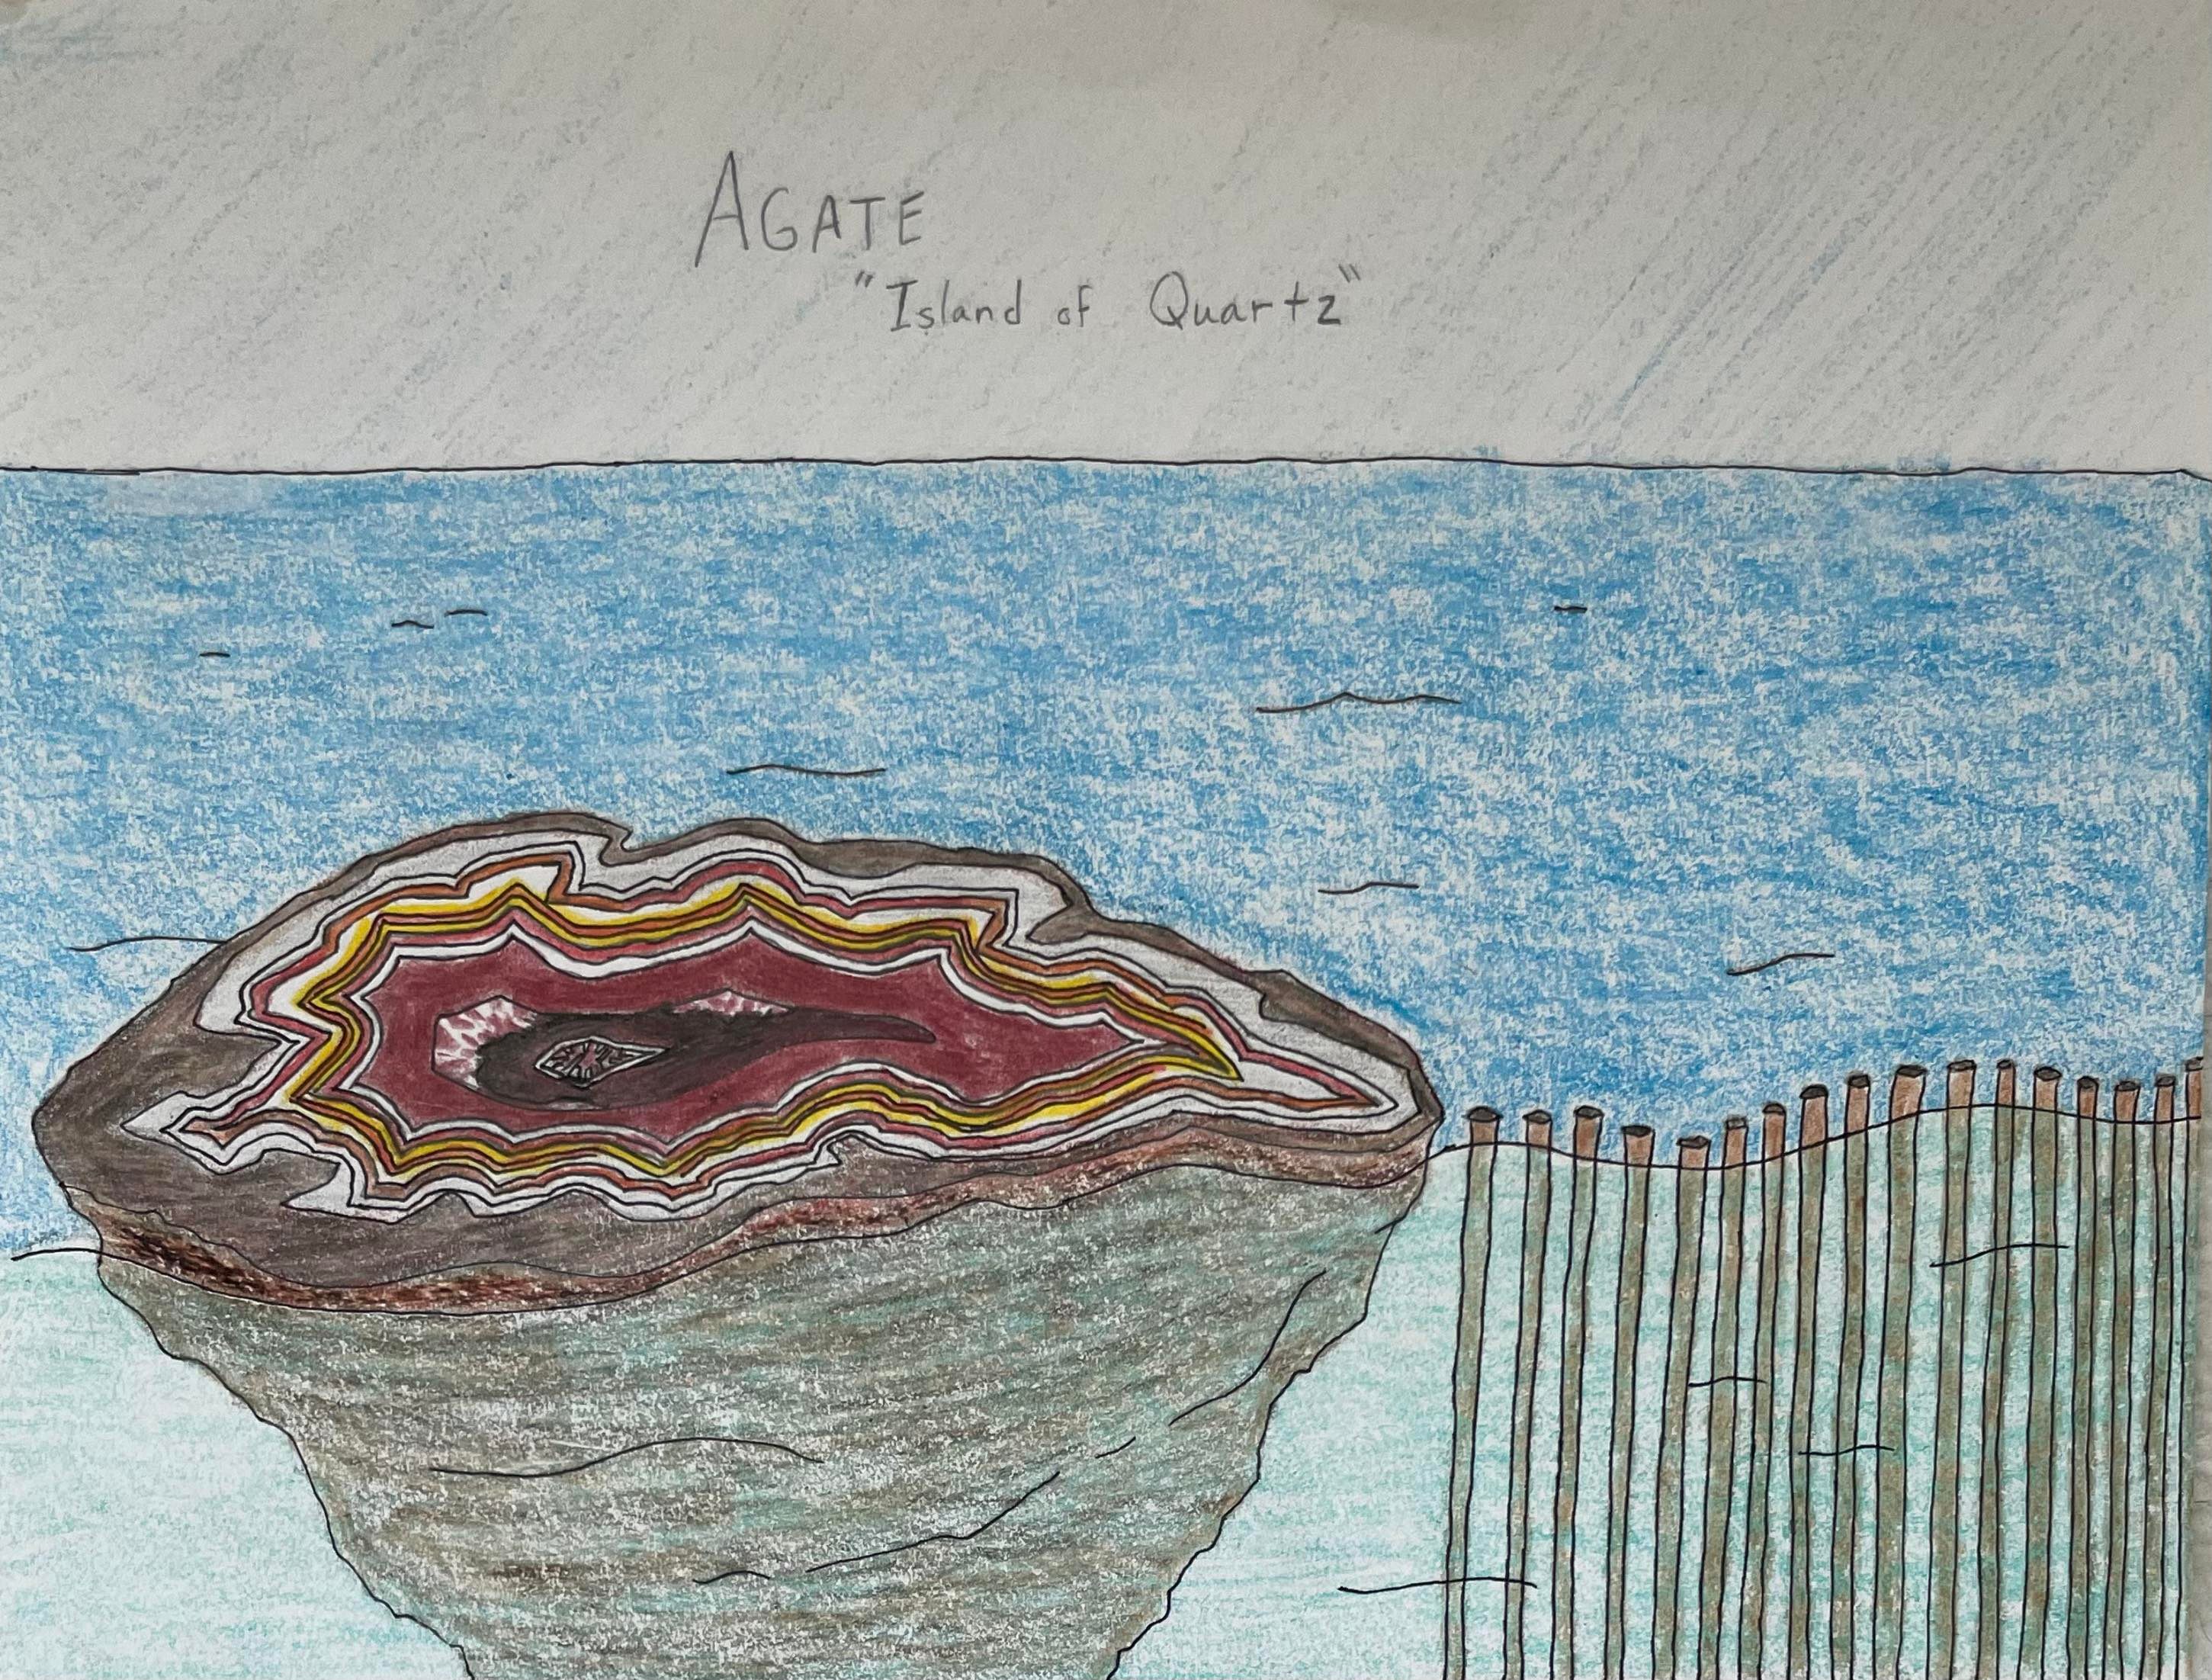 AGATE
"Island of Quartz"